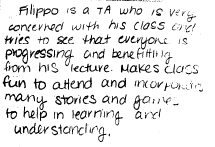 Filippo is a TA who is very
concerned with his class and
tries to see that everyone is
progressing and benefitting
from his lecture. Makes class
fun to attend and incorporates
many stories and games
to help in learning and
understanding.